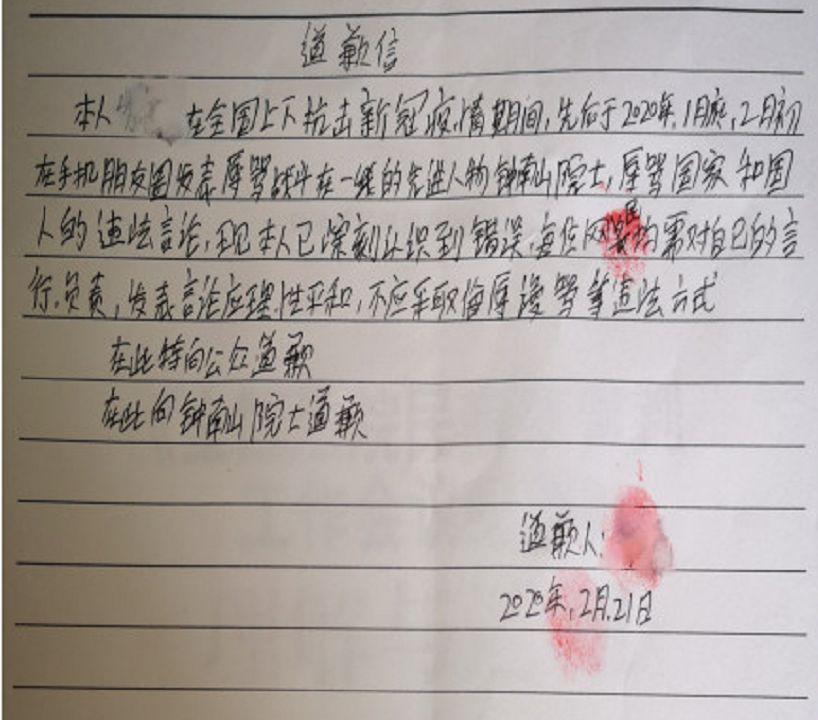 道歉信
本人 在全国上下抗击新冠疫情期间,先后于2020年,1月底,2月初
在手机朋友圈发表辱骂战斗在一线的先进人物钟南山院士,辱骂国家和国
人的违法言论,现本人已深刻认识到错误,每位网民均需对自己的言
行,负责,发表言论应理性平和,不应采取侮辱谩骂等违法方式
在此特向公众道歉
在此向钟南山院士道歉
道歉人:
2020年,2月.21日